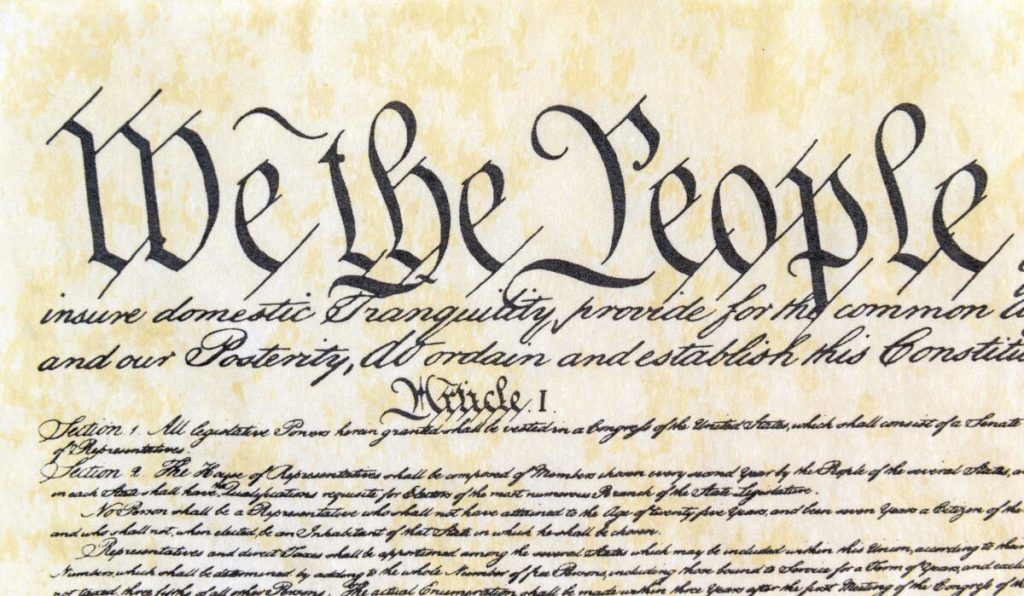 We the People
insure domestic Tranquility, provide for the common
and our Posterity, do ordain and establish this Constitu
Article. I.
Section 1. All legislative Powers herein granted shall be vested in a Congress of the United States, which shall consist of a Senate
of Representatives.
Section 2. The House of Representatives shall be composed of Members chosen every second Year by the People of the several States, a
in each State shall have the Qualifications requisite for Electors of the most numerous Branch of the State Legislature.
No Person shall be a Representative who shall not have attained to the Age of twenty five Years, and been seven Years a Citizen of the
and who shall not, when elected, be an Inhabitant of that State in which he shall be chosen.
Representatives and direct Taxes shall be apportioned among the several States which may be included within this Union, according to their
Numbers, which shall be determined by adding to the whole Number of free Persons, including those bound to Service for a Term of Years, and exclu
not taxed, three fifths of all other Persons. The actual Enumeration shall be made within three Years after the first Meeting of the Congress of th